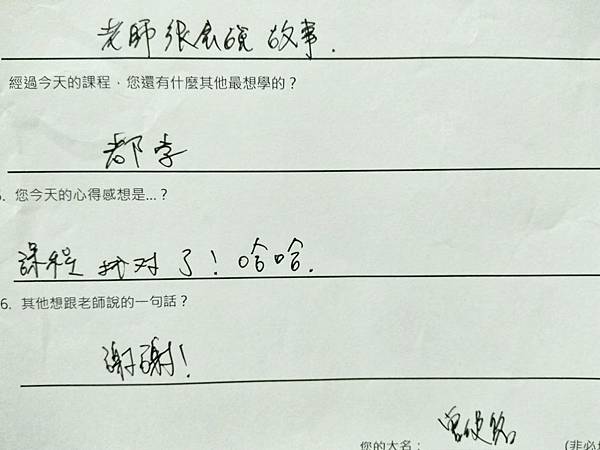 老師很會說故事.
經過今天的課程，您還有什麼其他最想學的？
都李
5. 您今天的心得感想是...？
課程找对了！哈哈.
6. 其他想跟老師說的一句話？
謝謝！
您的大名：
(非必